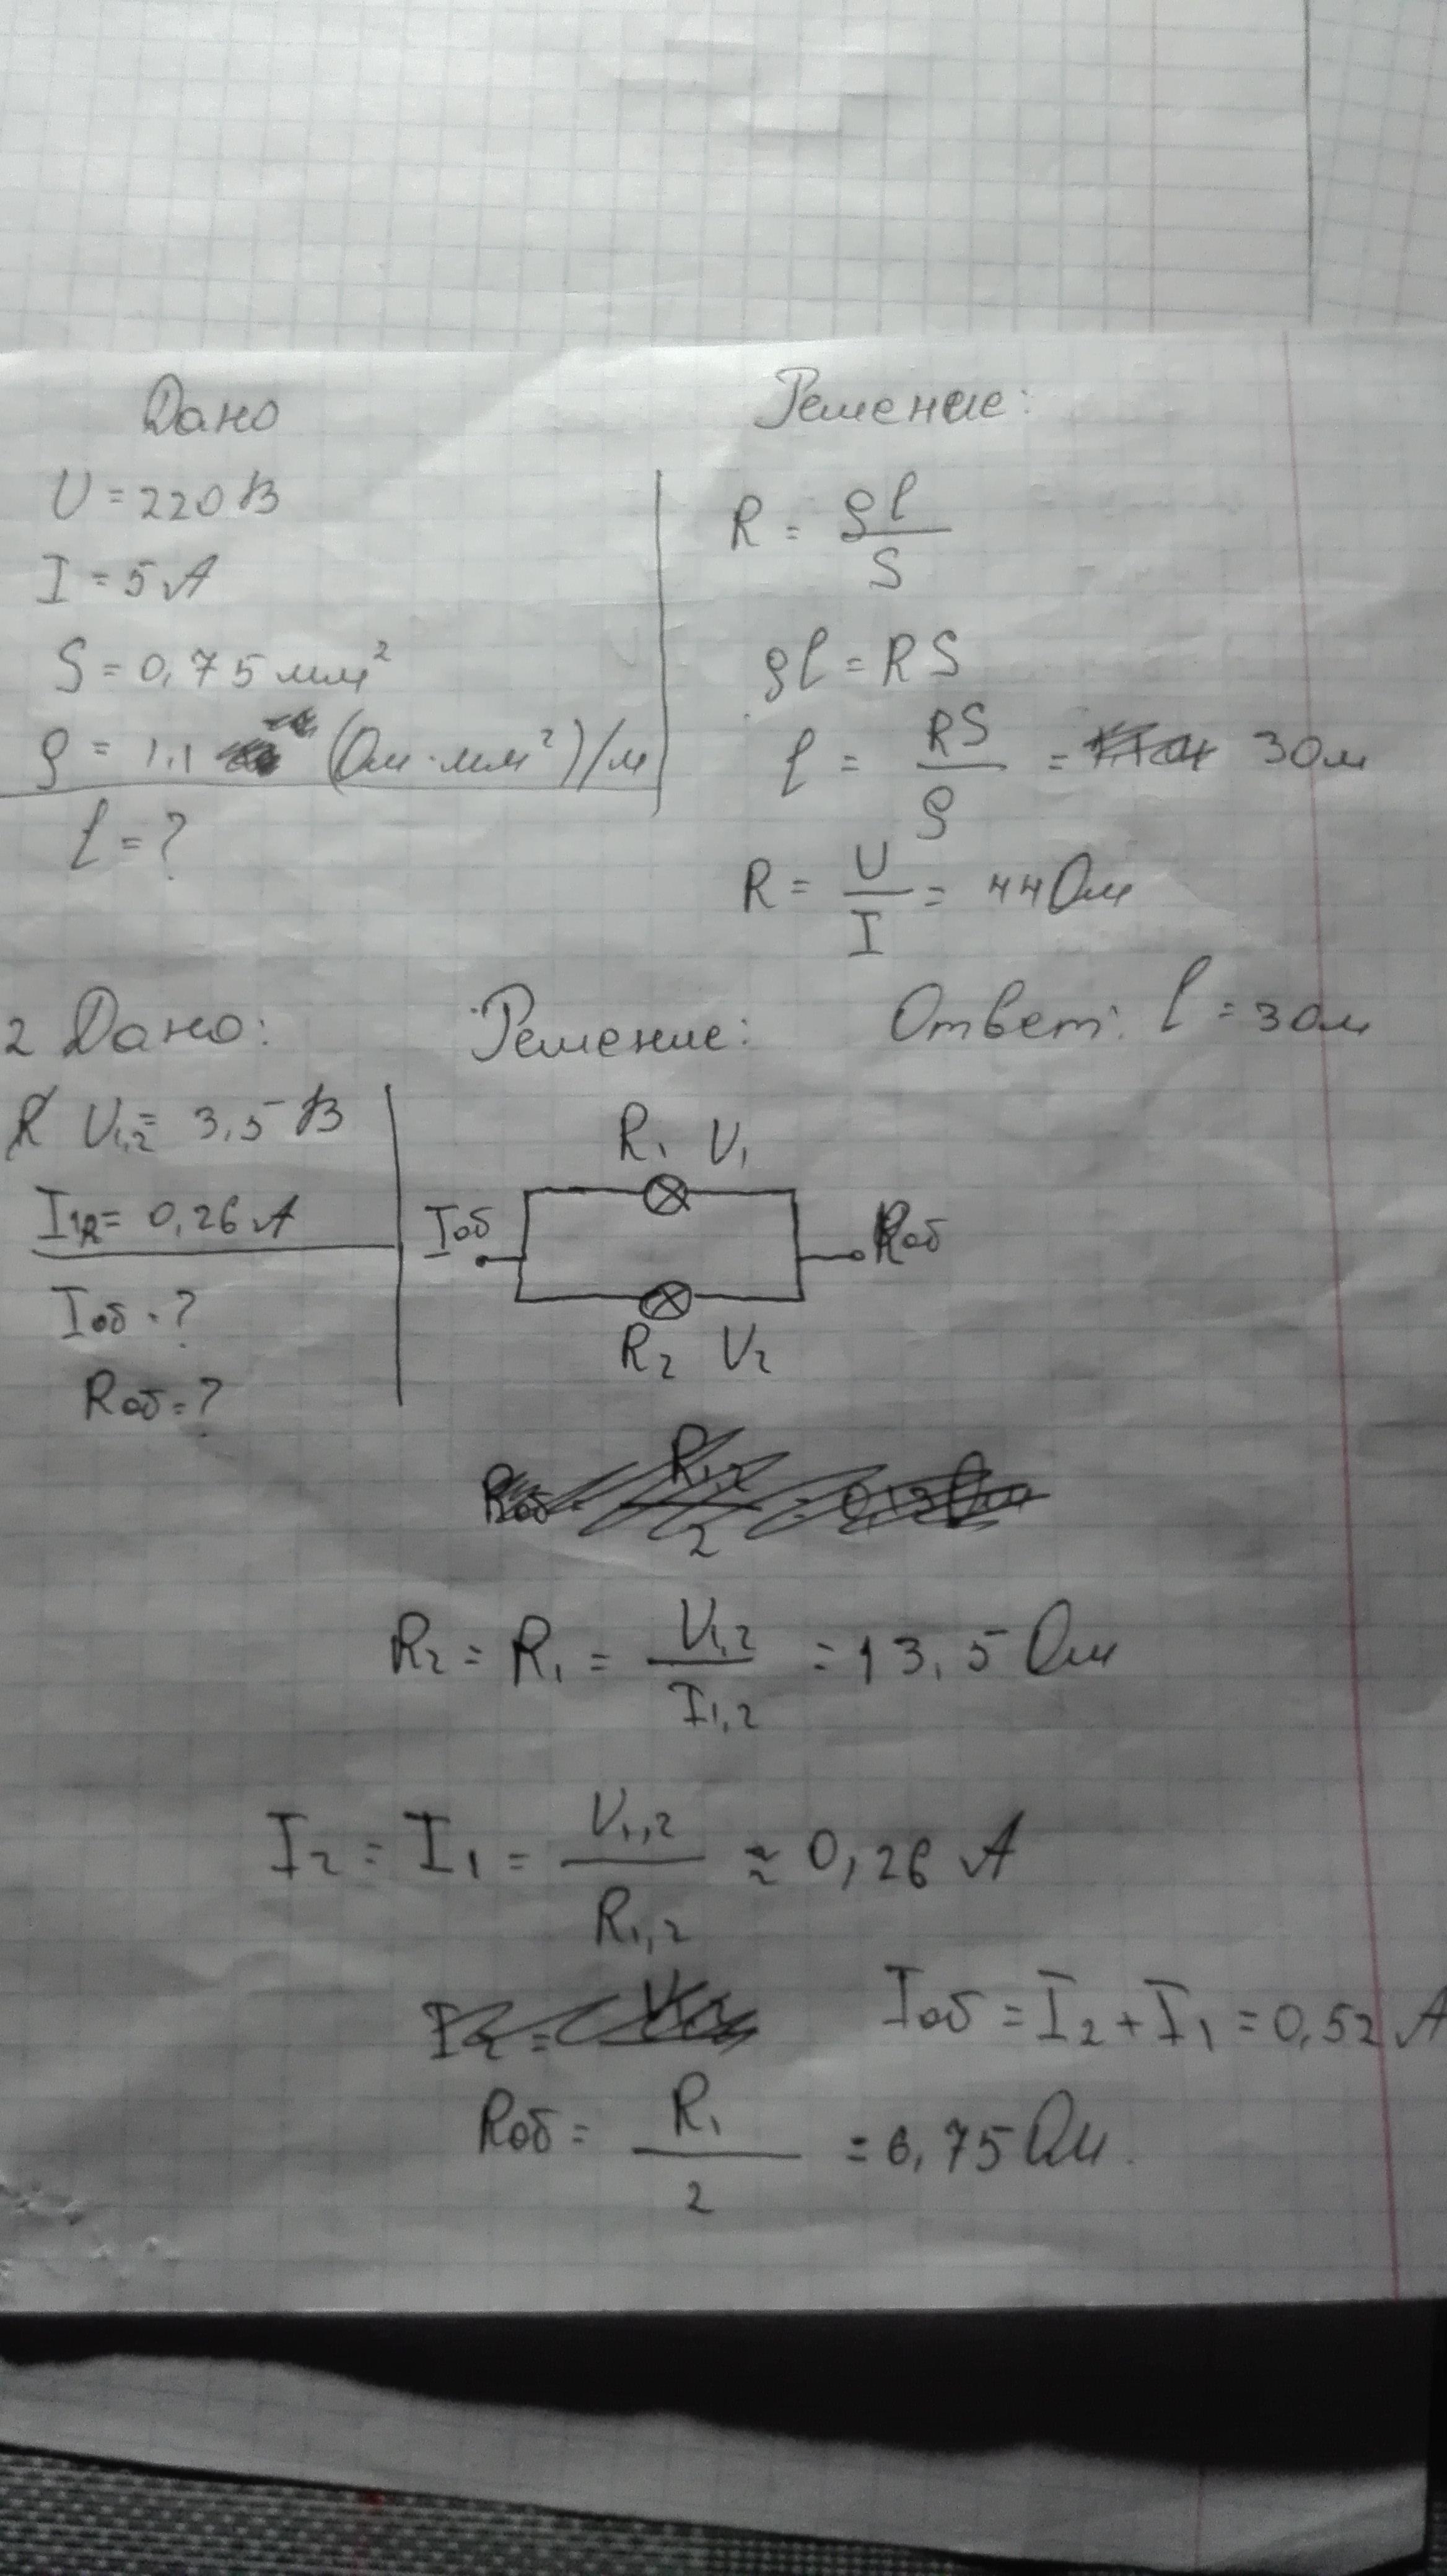 Дано
U = 220 В
I = 5 А
S = 0,75 мм²
ρ = 1,1 (Ом·мм²)/м
l = ?
Решение:
R = ρl/S
ρl = RS
l = RS/ρ = 30м
R = U/I = 44 Ом
Ответ: l = 30м
2 Дано:
U₁,₂ = 3,5 В
I₁,₂ = 0,26 А
Iоб = ?
Rоб = ?
Решение:
R₁ U₁
Iоб Rоб
R₂ U₂
R₂ = R₁ = U₁,₂/I₁,₂ = 13,5 Ом
I₂ = I₁ = U₁,₂/R₁,₂ ≈ 0,26 А
Iоб = I₂ + I₁ = 0,52 А
Rоб = R₁/2 = 6,75 Ом.